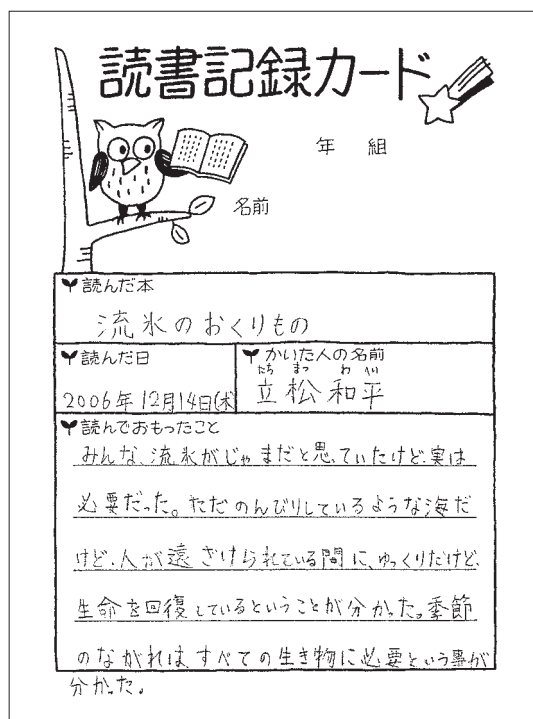 読書記録カード
年 組
名前
読んだ本
流氷のおくりもの
読んだ日
2006年12月14日(木)
かいた人の名前
たち まつ わ へい
立松和平
読んでおもったこと
みんな、流氷がじゃまだと思っていたけど、実は
必要だった。ただのんびりしているような海だ
けど、人が遠ざけられている間に、ゆっくりだけど、
生命を回復しているということが分かった。季節
のながれは、すべての生き物に必要という事が
分かった。